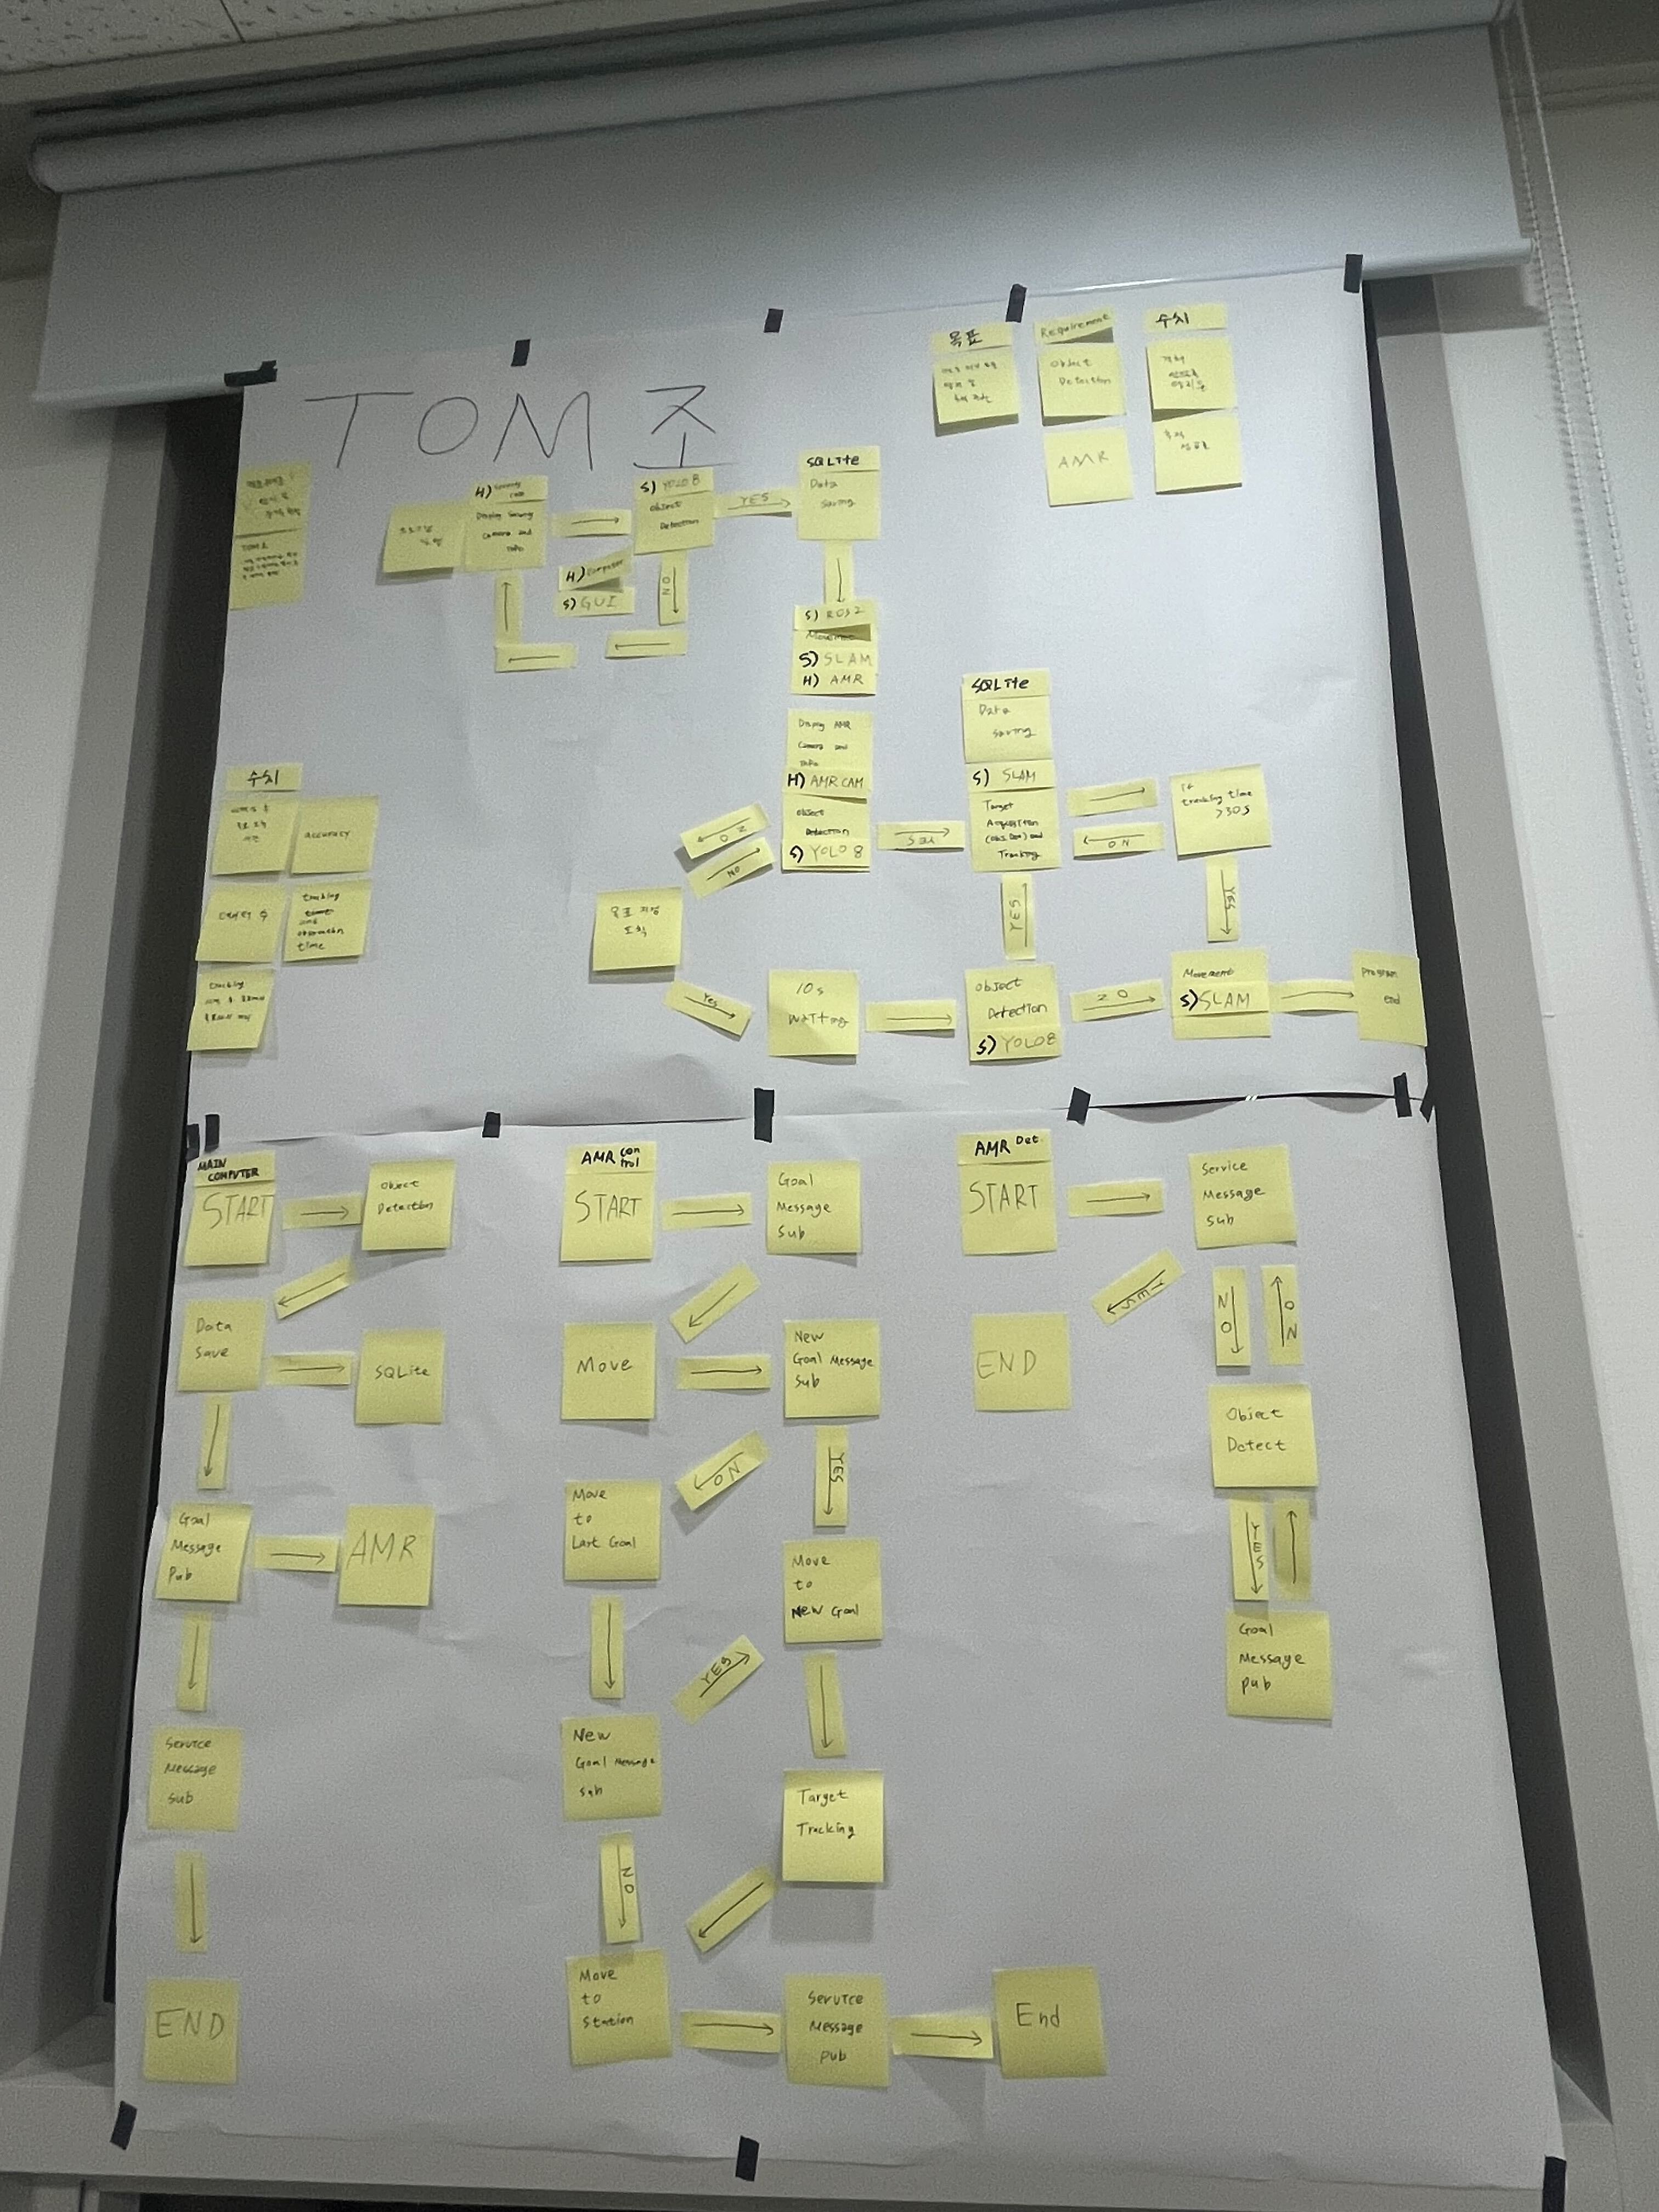 TOM 조
목표
Requirement
수치
Object
Detection
AMR
H)
Display
Camera and
Info
S) YOLO8
Object
Detection
YES
SQLite
Data
saving
NO
H) Computer
S) GUI
S) ROS2
Movement
S) SLAM
H) AMR
Display AMR
Camera and
Info
H) AMR CAM
Object
Detection
S) YOLO8
NO
NO
SQLite
Data
saving
S) SLAM
Target
Acquisition
(obs. Det) and
Tracking
If
tracking time
>30s
NO
YES
YES
목표 지점
도착
Yes
10s
waiting
Object
Detection
S) YOLO8
NO
Movement
S) SLAM
Program
end
수치
accuracy
tracking
and
observation
time
tracking
MAIN
COMPUTER
START
Object
Detection
Data
save
SQLite
Goal
Message
Pub
AMR
Service
Message
sub
END
AMR Control
START
Goal
Message
Sub
Move
New
Goal Message
Sub
NO
YES
Move
to
Last Goal
Move
to
New Goal
YES
New
Goal Message
Sub
Target
Tracking
NO
Move
to
Station
Service
Message
pub
End
AMR Det.
START
Service
Message
sub
YES
NO
NO
END
Object
Detect
YES
Goal
Message
pub